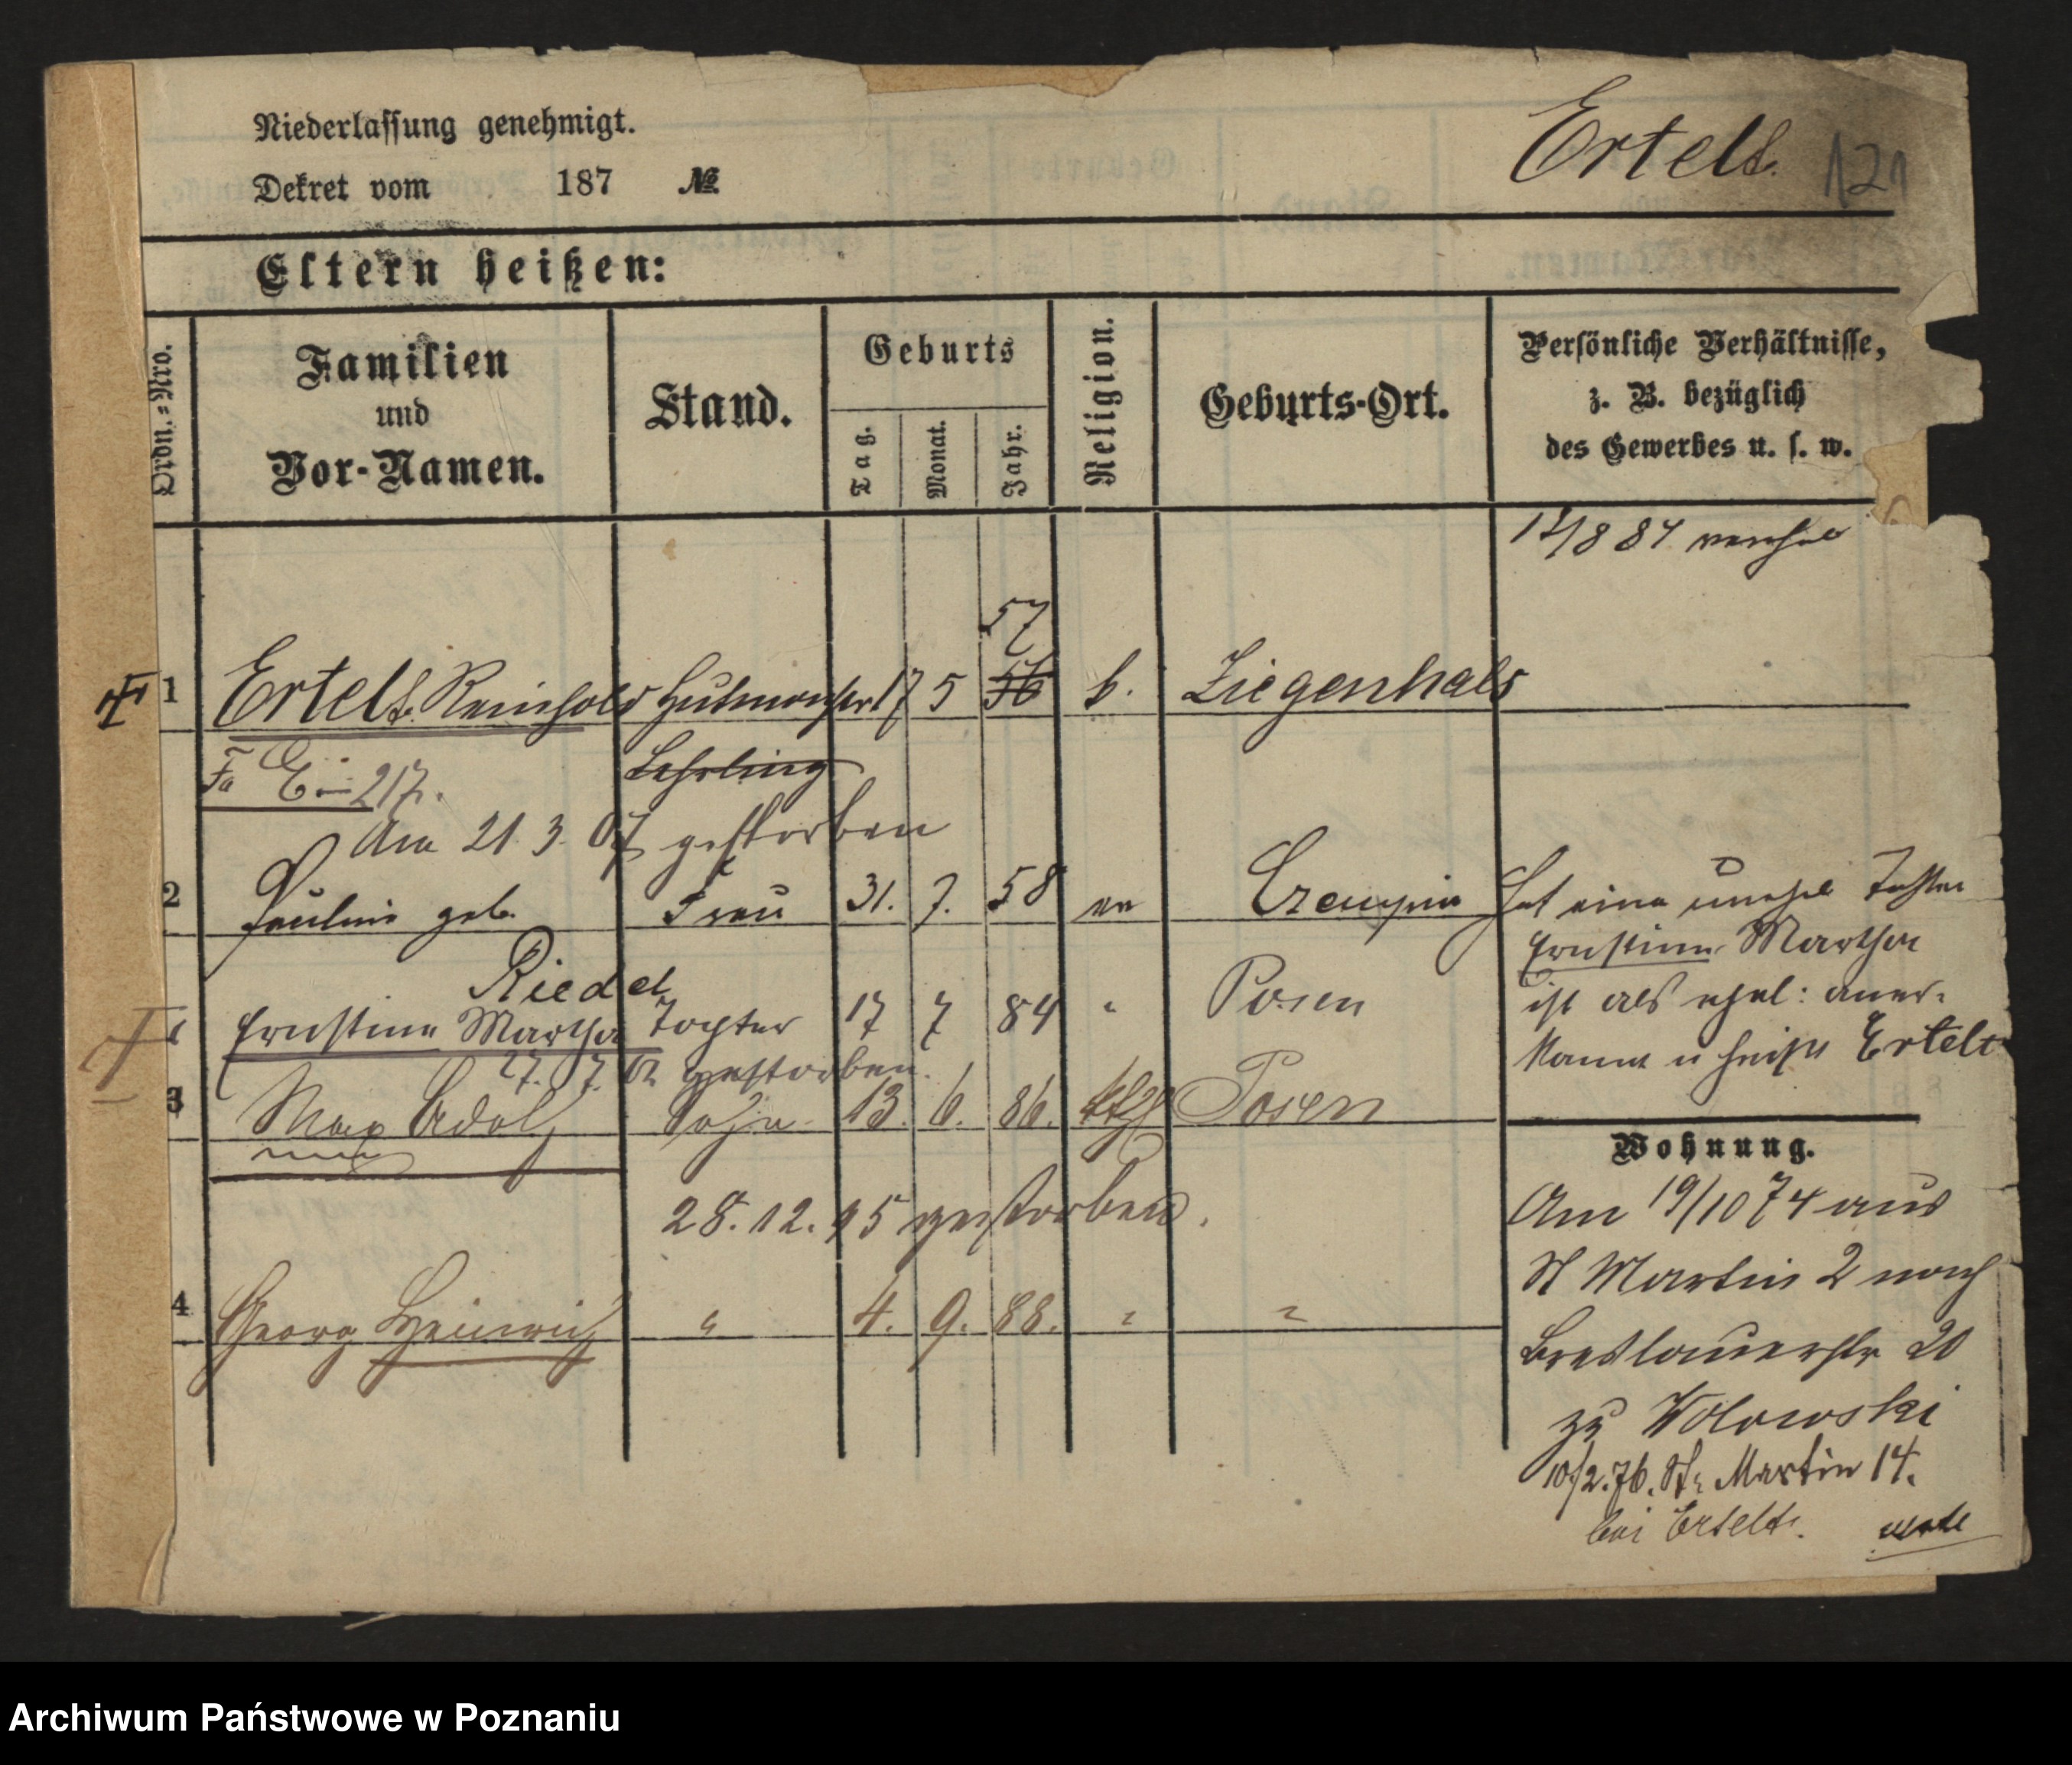 Niederlassung genehmigt.
Dekret vom 187 №
Ertelt. 121
Eltern heißen:
Ordn.=Nro.
Familien und Vor-Namen.
Stand.
Geburts
Tag. Monat. Jahr.
Religion.
Geburts-Ort.
Persönliche Verhältnisse,
z. B. bezüglich
des Gewerbes u. s. w.
57
1 Ertelt Reinhold Hutmacher 17 5 56 k. Ziegenhals
Lehrling
Am 21. 3. 07 gestorben
2 Pauline geb. Frau 31. 7. 58 ev Czempin
Riedel
Hat eine unehel Tochter
Ernstine Martha
ist als ehel: aner-
kannt u heißt Ertelt
Ernstine Martha Tochter 17 7 84 " Posen
27. 7. gestorben.
3 Max Adolf Sohn 13. 6. 86. kth Posen
28. 12. 95 gestorben.
4 Georg Heinrich " 4. 9. 88. " "
Wohnung.
Am 19/10 74 aus
St Martin 2 nach
Breslauerstr 20
zu Wolowski
10/2. 76. St. Martin 14.
bei Ertelt.